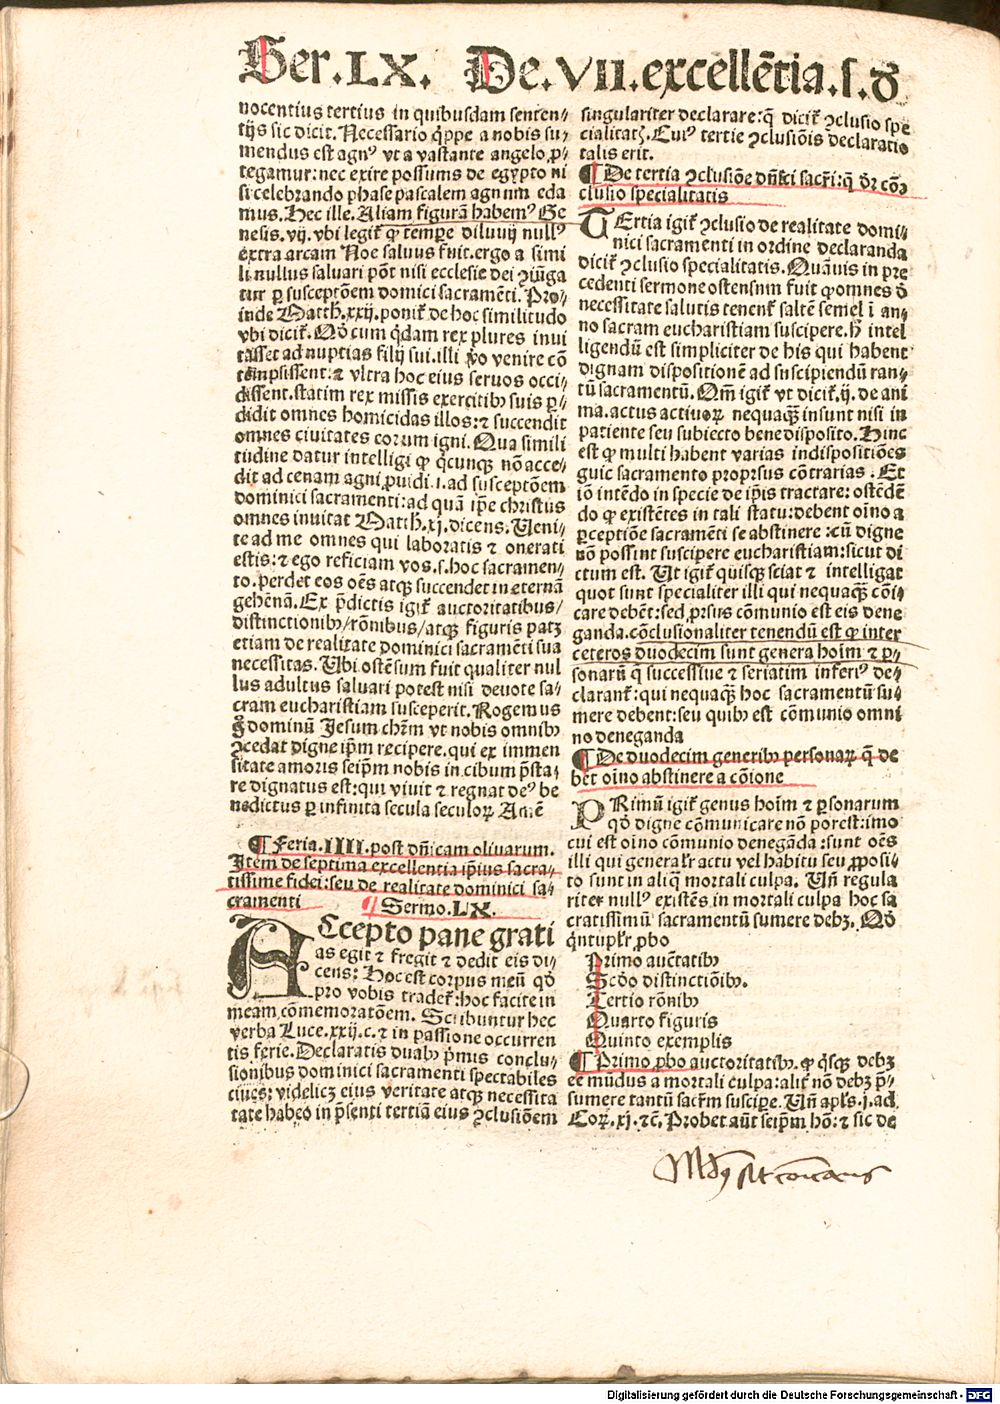 Ser.LX. De.VII.excellẽtia.ſ.ꝺ
nocentius tertius in quibuſdam ſenten⸗
tijs ſic dicit. Neceſſario q̃ppe a nobis ſu⸗
mendus eſt agnꝰ vt a vaſtante angelo ꝓ⸗
tegamur: nec exire poſſums de egypto ni
ſi celebrando phaſe paſcalem agnum eda
mus. Hec ille. Aliam figurã habemꝰ Ge
neſis. vij. vbi legit̃ ꝙ tempe diluuij nullꝰ
extra arcam Noe ſaluus fuit. ergo a ſimi
li nullus ſaluari põt niſi eccleſie dei ꝯiũga
tur ꝑ ſuſceptõem domici ſacramẽti. Pro⸗
inde Matth. xxij. ponit̃ de hoc ſimilitudo
vbi dicit̃. Qð cum q̃dam rex plures inui
taſſet ad nuptias filij ſui. illi ꝟo venire cõ
tẽpſiſſent: ⁊ vltra hoc eius ſeruos occi⸗
diſſent. ſtatim rex miſſis exercitibꝰ ſuis ꝑ⸗
didit omnes homicidas illos: ⁊ ſuccendit
omnes ciuitates eorum igni. Qua ſimili
tudine datur intelligi ꝙ q̃cunqꝫ nõ acce⸗
dit ad cenam agni ꝓuidi .i. ad ſuſceptõem
dominici ſacramenti: ad quã ip̃e chriſtus
omnes inuitat Matth. xj. dicens. Ueni⸗
te ad me omnes qui laboratis ⁊ onerati
eſtis: ⁊ ego reficiam vos. ſ. hoc ſacramen⸗
to. perdet eos oẽs atqꝫ ſuccendet in eternã
gehẽnã. Ex p̃dictis igit̃ auctoritatibus/
diſtinctionibꝰ/rõnibus/atqꝫ figuris patꝫ
etiam de realitate dominici ſacramẽti ſua
neceſſitas. Ubi oſtẽſum fuit qualiter nul
lus adultus ſaluari poteſt niſi deuote ſa⸗
cram euchariſtiam ſuſceperit. Rogemus
g̃ dominũ Jeſum chr̃m vt nobis omnibꝰ
ꝯcedat digne ip̃m recipere. qui ex immen
ſitate amoris ſeip̃m nobis in cibum p̃ſta⸗
re dignatus eſt: qui viuit ⁊ regnat deꝰ be
nedictus ꝑ infinita ſecula ſeculoꝝ Amẽ
¶ Feria. IIII. poſt dñicam oliuarum.
Item de ſeptima excellentia ip̃ius ſacra⸗
tiſſime fidei: ſeu de realitate dominici ſa⸗
cramenti ¶ Sermo. LX.
Accepto pane grati
as egit ⁊ fregit ⁊ dedit eis di⸗
cens: Hoc eſt corpus meũ qð
pro vobis tradet̃: hoc facite in
meam cõmemoratõem. Scribuntur hec
verba Luce. xxij. c. ⁊ in paſſione occurren
tis ferie. Declaratis duabꝰ p̃mis conclu⸗
ſionibus dominici ſacramenti ſpectabiles
ciues: videlicꝫ eius veritate atqꝫ neceſſita
tate habeo in p̃ſenti tertiã eius ꝯcluſiõem
ſingulariter declarare: q̃ dicit̃ ꝯcluſio ſpe
cialitatꝭ. Cuiꝰ tertie ꝯcluſiõis declaratio
talis erit.
¶ De tertia ꝯcluſiõe dñici ſacr̃i: q̃ dr̃ cõ⸗
cluſio ſpecialitatis
TErtia igit̃ ꝯcluſio de realitate domi⸗
nici ſacramenti in ordine declaranda
dicit̃ ꝯcluſio ſpecialitatis. Quãuis in pre
cedenti ſermone oſtenſum fuit ꝙ omnes ð
neceſſitate ſalutis tenent̃ ſaltẽ ſemel ĩ an⸗
no ſacram euchariſtiam ſuſcipere. hͦ intel
ligendũ eſt ſimpliciter de his qui habent
dignam diſpoſitionẽ ad ſuſcipiendũ tan⸗
tũ ſacramentũ. Qm̃ igit̃ vt dicit̃. ij. de ani
ma. actus actiuoꝝ nequaqꝫ inſunt niſi in
patiente ſeu ſubiecto bene diſpoſito. Hinc
eſt ꝙ multi habent varias indiſpoſitiões
huic ſacramento proprſus cõtrarias. Et
iõ intẽdo in ſpecie de ip̃is tractare: oſtẽdẽ
do ꝙ exiſtẽtes in tali ſtatu: debent oĩno a
ꝑceptiõe ſacramẽti ſe abſtinere: cũ digne
nõ poſſint ſuſcipere euchariſtiam: ſicut di
ctum eſt. Ut igit̃ quiſqꝫ ſciat ⁊ intelligat
quot ſunt ſpecialiter illi qui nequaqꝫ cõi⸗
care debẽt: ſed ꝓrſus cõmunio eſt eis dene
ganda. cõcluſionaliter tenendũ eſt ꝙ inter
ceteros duodecim ſunt genera hoĩm ⁊ ꝑ⸗
ſonarũ q̃ ſucceſſiue ⁊ ſeriatim inferiꝰ de⸗
clarant̃: qui nequaqꝫ hoc ſacramentũ ſu⸗
mere debent: ſeu quibꝰ eſt cõmunio omni
no deneganda
¶ De duodecim generibꝰ perſonaꝝ q̃ de
bẽt oĩno abſtinere a cõione
PRimũ igit̃ genus hoĩm ⁊ ꝑſonarum
qð digne cõmunicare nõ poteſt: imo
cui eſt oĩno cõmunio denegãda: ſunt oẽs
illi qui general̃r actu vel habitu ſeu ꝓpoſi⸗
to ſunt in aliq̃ mortali culpa. Uñ regula
riter nullꝰ exiſtẽs in mortali culpa hoc ſa
cratiſſimũ ſacramentũ ſumere debꝫ. Qð
q̃ntupl̃r ꝓbo
Primo auc̃tatibꝰ
Scðo diſtinctiõibꝰ.
Tertio rõnibꝰ
Quarto figuris
Quinto exemplis
¶ Primo ꝓbo auctoritatibꝰ. ꝙ q̃ſqꝫ debꝫ
eẽ mũdus a mortali culpa: alit̃ nõ debꝫ p̃⸗
ſumere tantũ ſacr̃m ſuſcipe. Uñ apl̃s. j. ad
Coꝝ. xj. ⁊c̃. Probet aũt ſeip̃m hõ: ⁊ ſic de
Digitalisierung gefördert durch die Deutsche Forschungsgemeinschaft - DFG